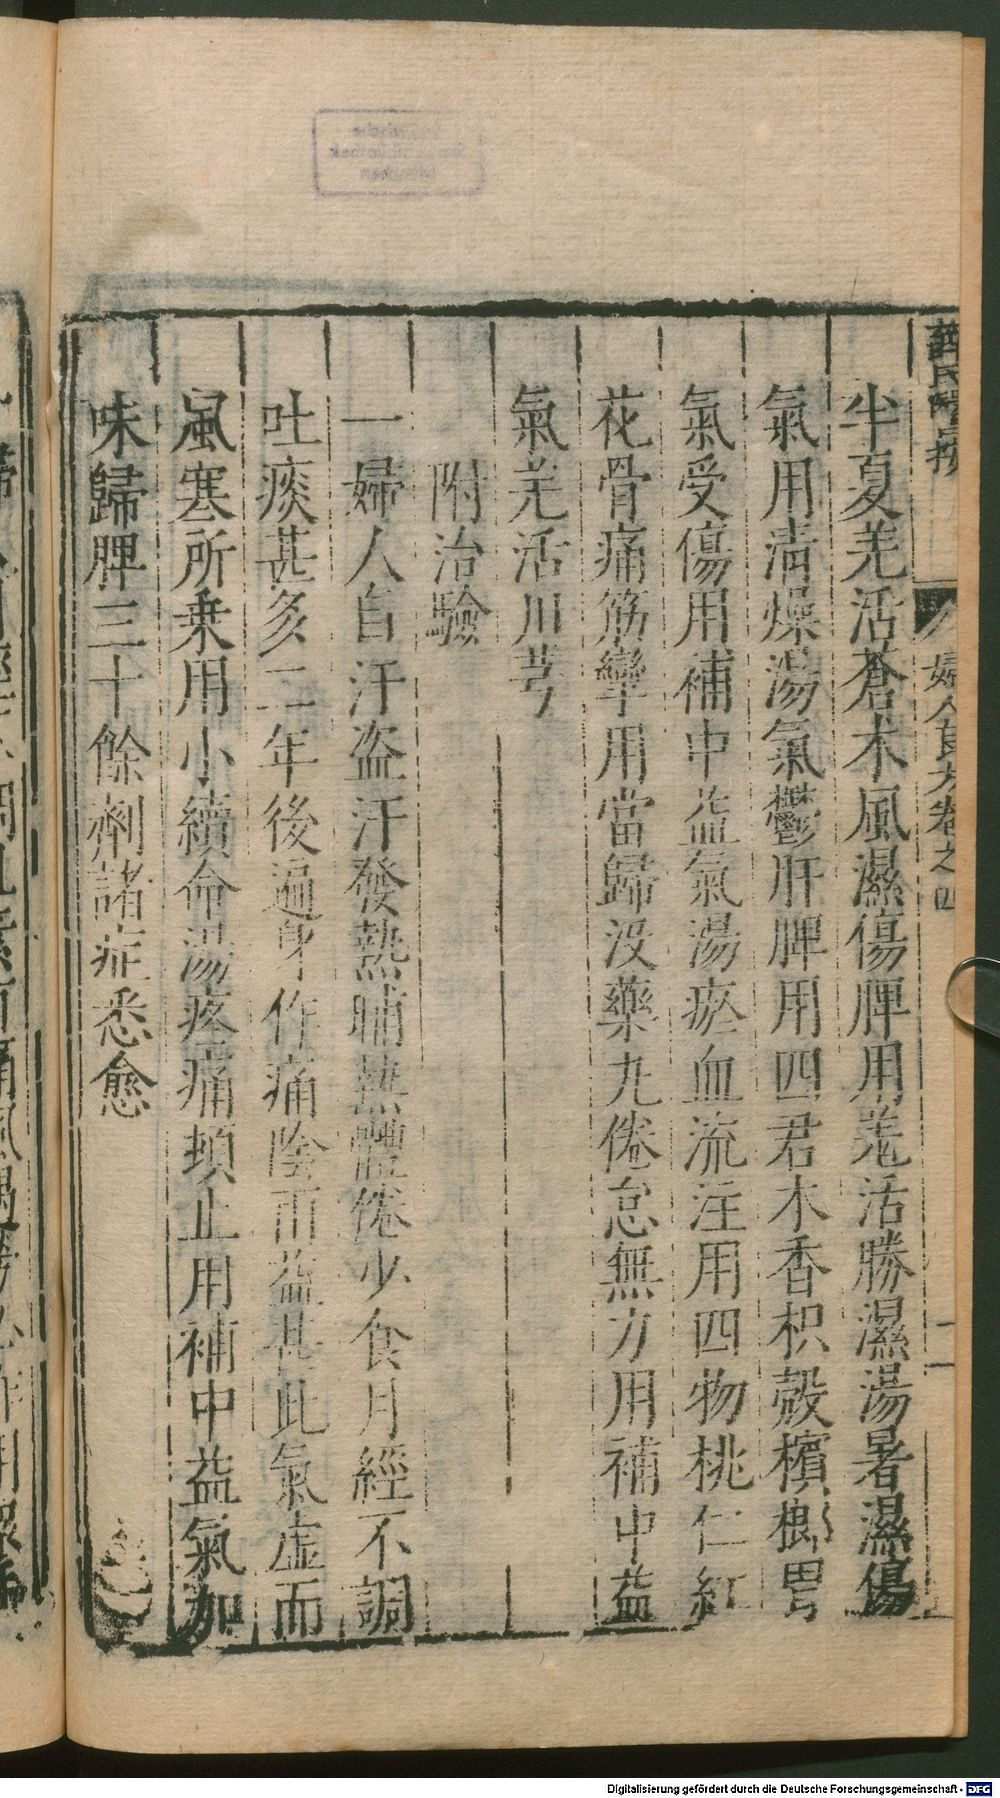 半夏羌活蒼术風濕傷脾用羌活勝濕湯暑濕傷
氣用清燥湯氣鬱肝脾用四君木香枳殻檳榔胃
氣受傷用補中益氣湯瘀血流注用四物桃仁紅
花骨痛筋攣用當歸没藥丸倦怠無力用補中益
氣羌活川芎
附治驗
一婦人自汗盗汗發熱晡熱體倦少食月經不調
吐痰甚多二年後遍身作痛陰雨益甚此氣虚而
風寒所乗用小續命湯疼痛頓止用補中益氣加
味歸脾三十餘劑諸症悉愈
婦人良方卷之四
Digitalisierung gefördert durch die Deutsche Forschungsgemeinschaft - DFG